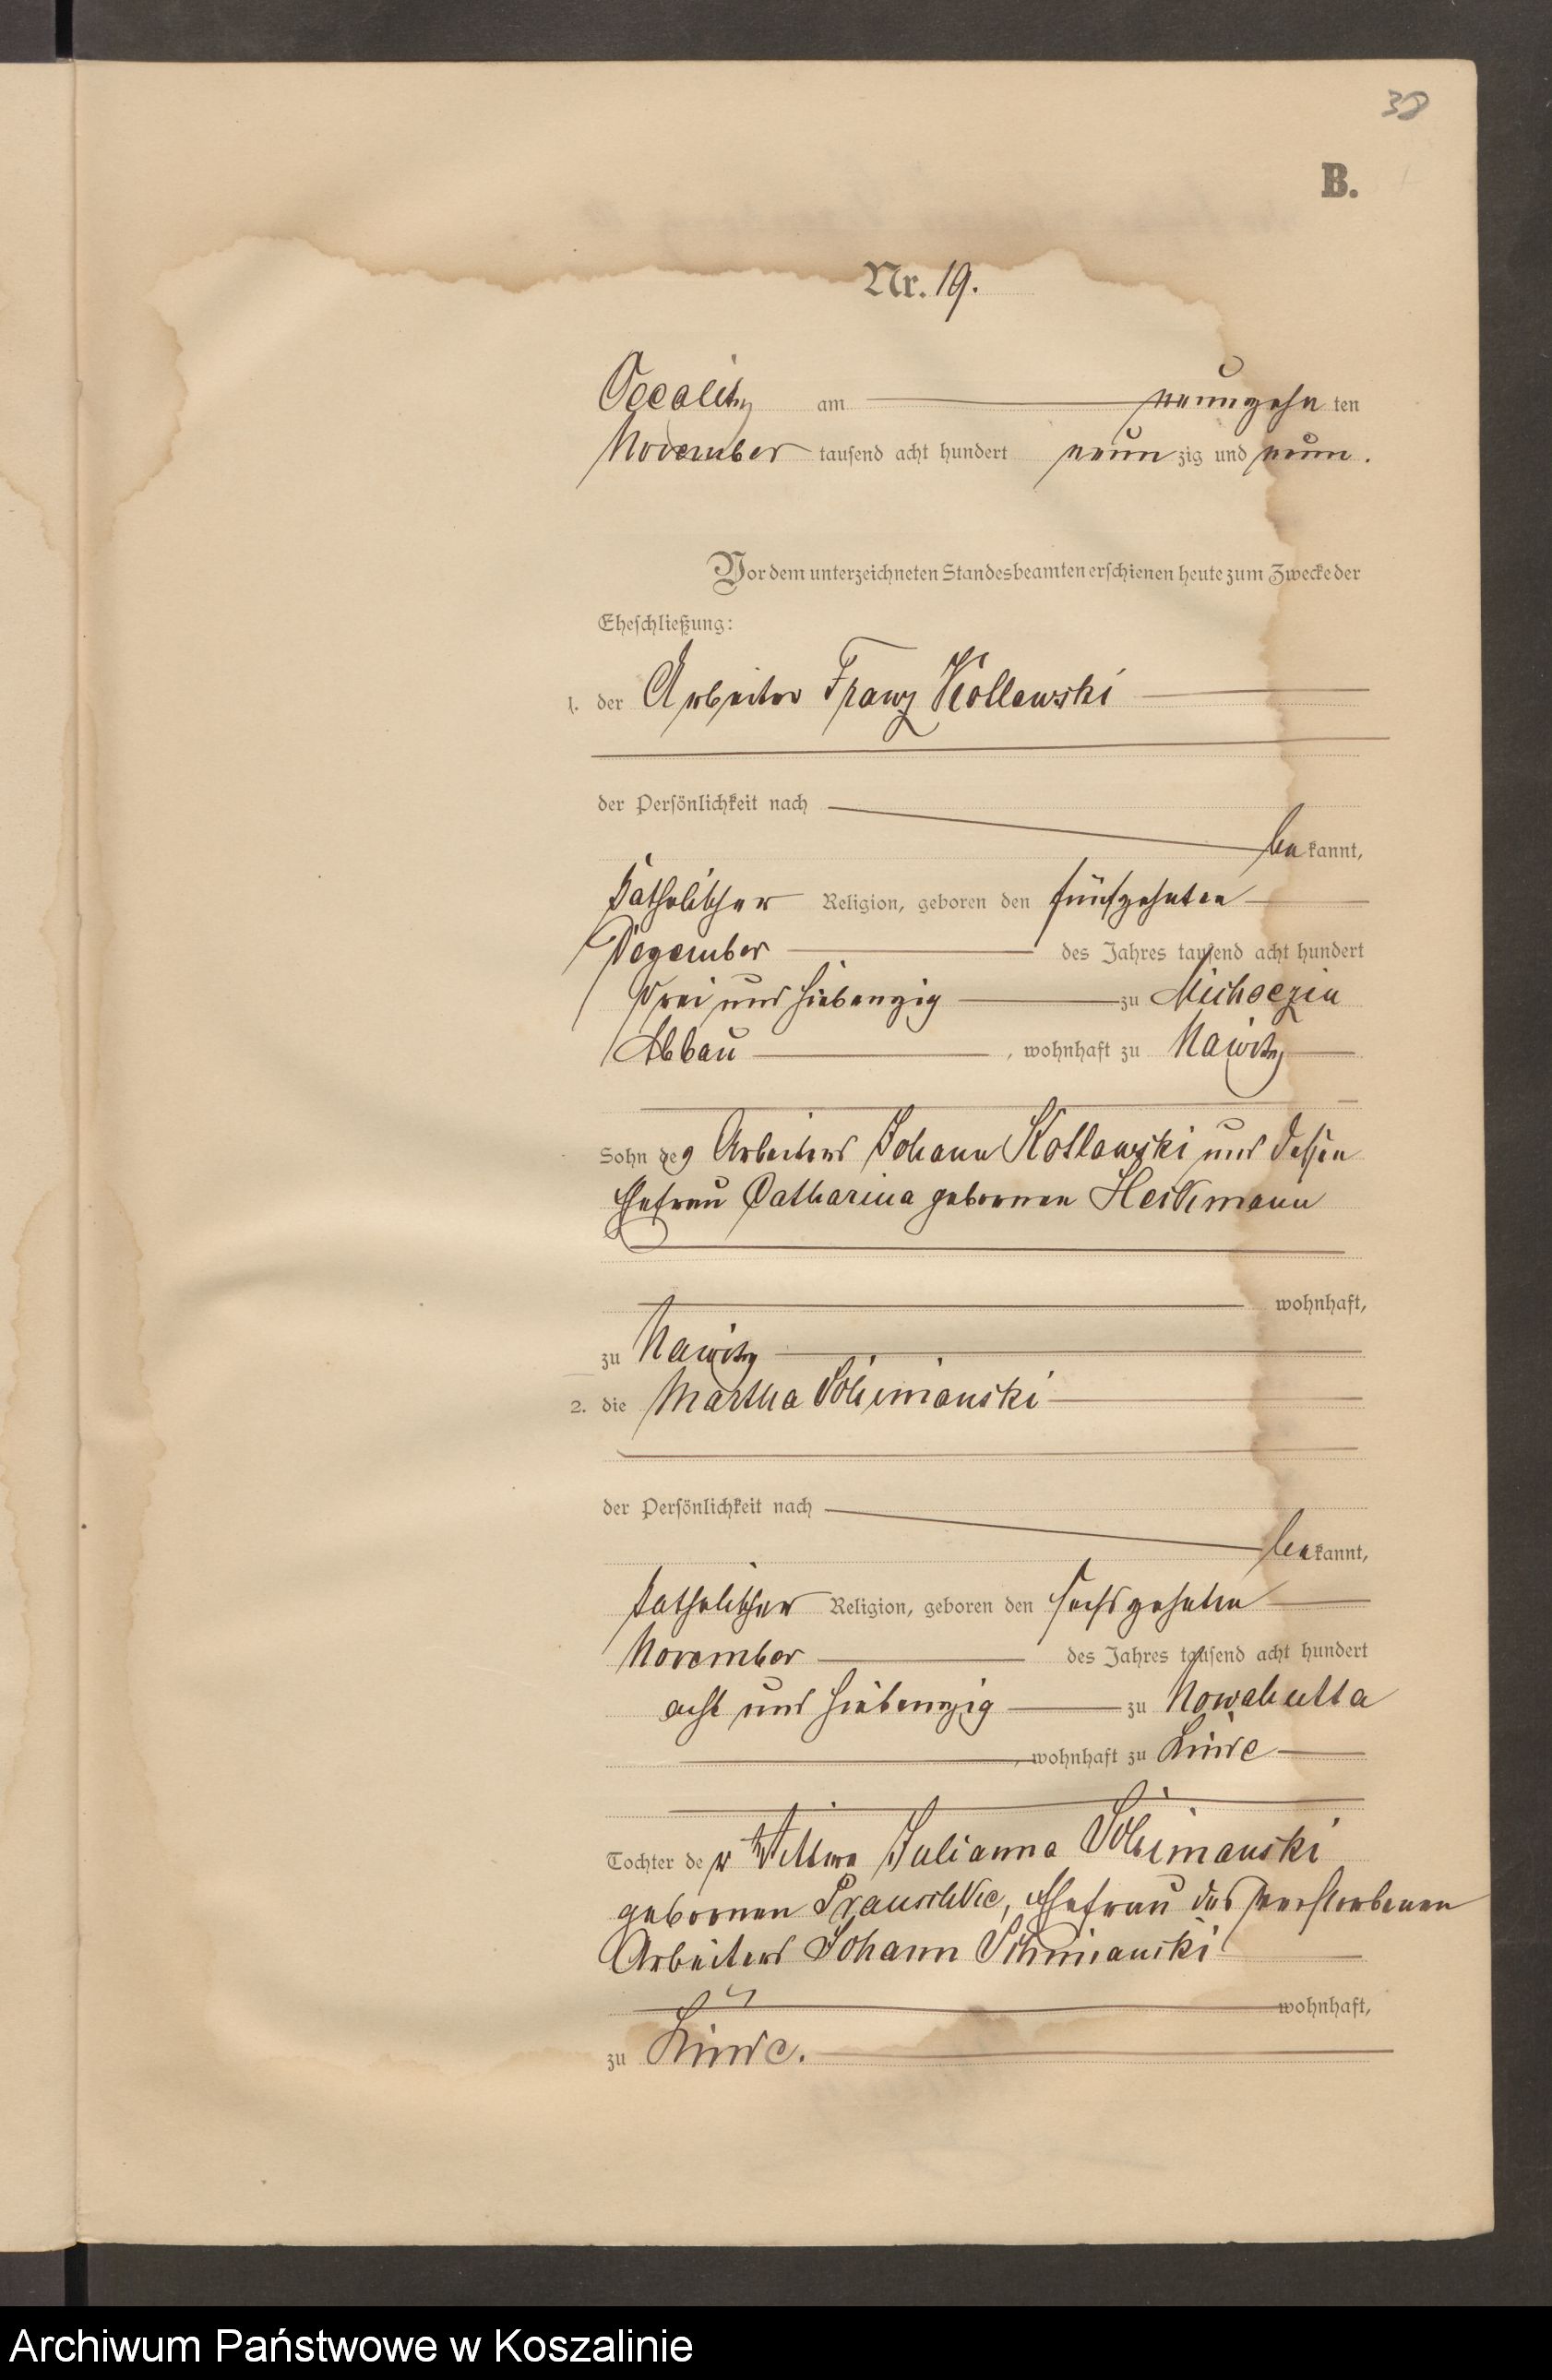 38
B.
Nr. 19.
Occalitz am neunzehn ten
November tausend acht hundert neun zig und neun.
Vor dem unterzeichneten Standesbeamten erschienen heute zum Zwecke der
Eheschließung:
1. der Arbeiter Franz Kollowski
der Persönlichkeit nach
be kannt,
katholischer Religion, geboren den fünfzehnten
Dezember des Jahres tausend acht hundert
drei und siebenzig zu
Abbau , wohnhaft zu Nawitz
Sohn des Arbeiters Johann und dessen
Ehefrau Catharina geborenen
wohnhaft,
zu Nawitz
2. die Martha Schimanski
der Persönlichkeit nach
be kannt,
katholischer Religion, geboren den sechszehnten
November des Jahres tausend acht hundert
acht und siebenzig zu Nowahutta
, wohnhaft zu Linde
Tochter der Wittwe Julianna Schimanski
geborenen , Ehefrau des verstorbenen
Arbeiters Johann Schimanski
wohnhaft,
zu Linde.
Archiwum Państwowe w Koszalinie